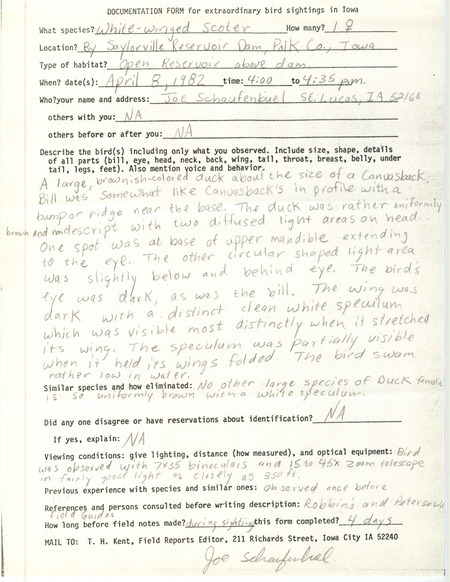 DOCUMENTATION FORM for extraordinary bird sightings in Iowa
What species? White-winged Scoter How many? 1 ♀
Location? By Saylorville Reservoir Dam, Polk Co., Iowa
Type of habitat? Open Reservoir above dam.
When? date(s): April 8, 1982 time: 4:00 to 4:35 p.m.
Who? your name and address: Joe Schaufenbuel St. Lucas, IA 52166
others with you: NA
others before or after you: NA
Describe the bird(s) including only what you observed. Include size, shape, details
of all parts (bill, eye, head, neck, back, wing, tail, throat, breast, belly, under
tail, legs, feet). Also mention voice and behavior.
A large, brownish-colored duck about the size of a Canvasback.
Bill was somewhat like Canvasback's in profile with a
bump or ridge near the base. The duck was rather uniformly
brown and nondescript with two diffused light areas on head.
One spot was at base of upper mandible extending
to the eye. The other circular shaped light area
was slightly below and behind eye. The bird's
eye was dark, as was the bill. The wing was
dark with a distinct clean white speculum
which was visible most distinctly when it stretched
its wing. The speculum was partially visible
when it held its wings folded. The bird swam
rather low in water.
Similar species and how eliminated: No other large species of Duck female
is so uniformly brown with a white speculum.
Did any one disagree or have reservations about identification? NA
If yes, explain: NA
Viewing conditions: give lighting, distance (how measured), and optical equipment: Bird
was observed with 7x35 binoculars and 15 to 45x zoom telescope
in fairly good light as closely as 350 ft.
Previous experience with species and similar ones: observed once before
References and persons consulted before writing description: Robbin's and Peterson's
Field Guides
How long before field notes made? during sighting this form completed? 4 days
MAIL TO: T. H. Kent, Field Reports Editor, 211 Richards Street, Iowa City IA 52240
Joe Schaufenbuel